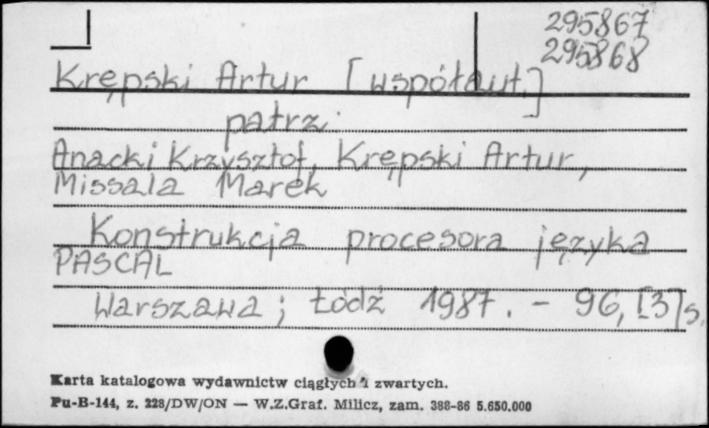 295867
295868
Krępski Artur [współaut.]
patrz:
Anacki Krzysztof, Krępski Artur,
Missala Marek
Konstrukcja procesora języka
PASCAL
Warszawa; Łódź 1987. - 96, [3] s.
Karta katalogowa wydawnictw ciągłych i zwartych.
Pu-B-144, z. 228/DW/ON — W.Z.Graf. Milicz, zam. 388-86 5.650.000